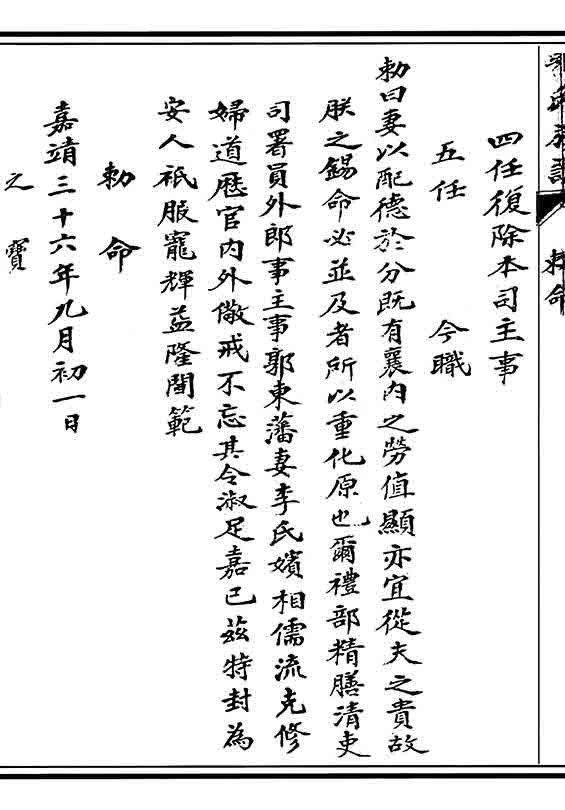 四任復除本司主事
五任 今職
勅曰妻以配德於分既有襄內之勞值顯亦宜從夫之貴故
朕之錫命必並及者所以重化原也爾禮部精膳清吏
司署員外郎事主事郭東藩妻李氏嬪相儒流克修
婦道歷官內外儆戒不忘其令淑足嘉已茲特封為
安人祇服寵輝益隆閫範
勅命
嘉靖三十六年九月初一日
之寶